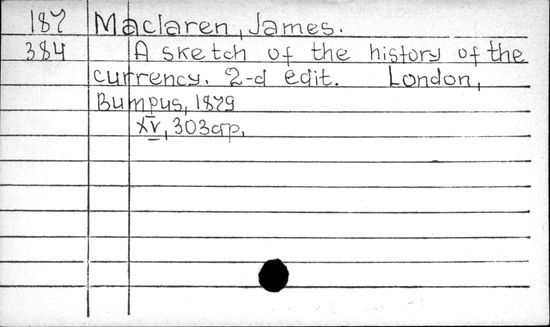 187 Maclaren, James.
384 A sketch of the history of the
currency. 2-d edit. London,
Bumpus, 1879
XV, 303 стр.